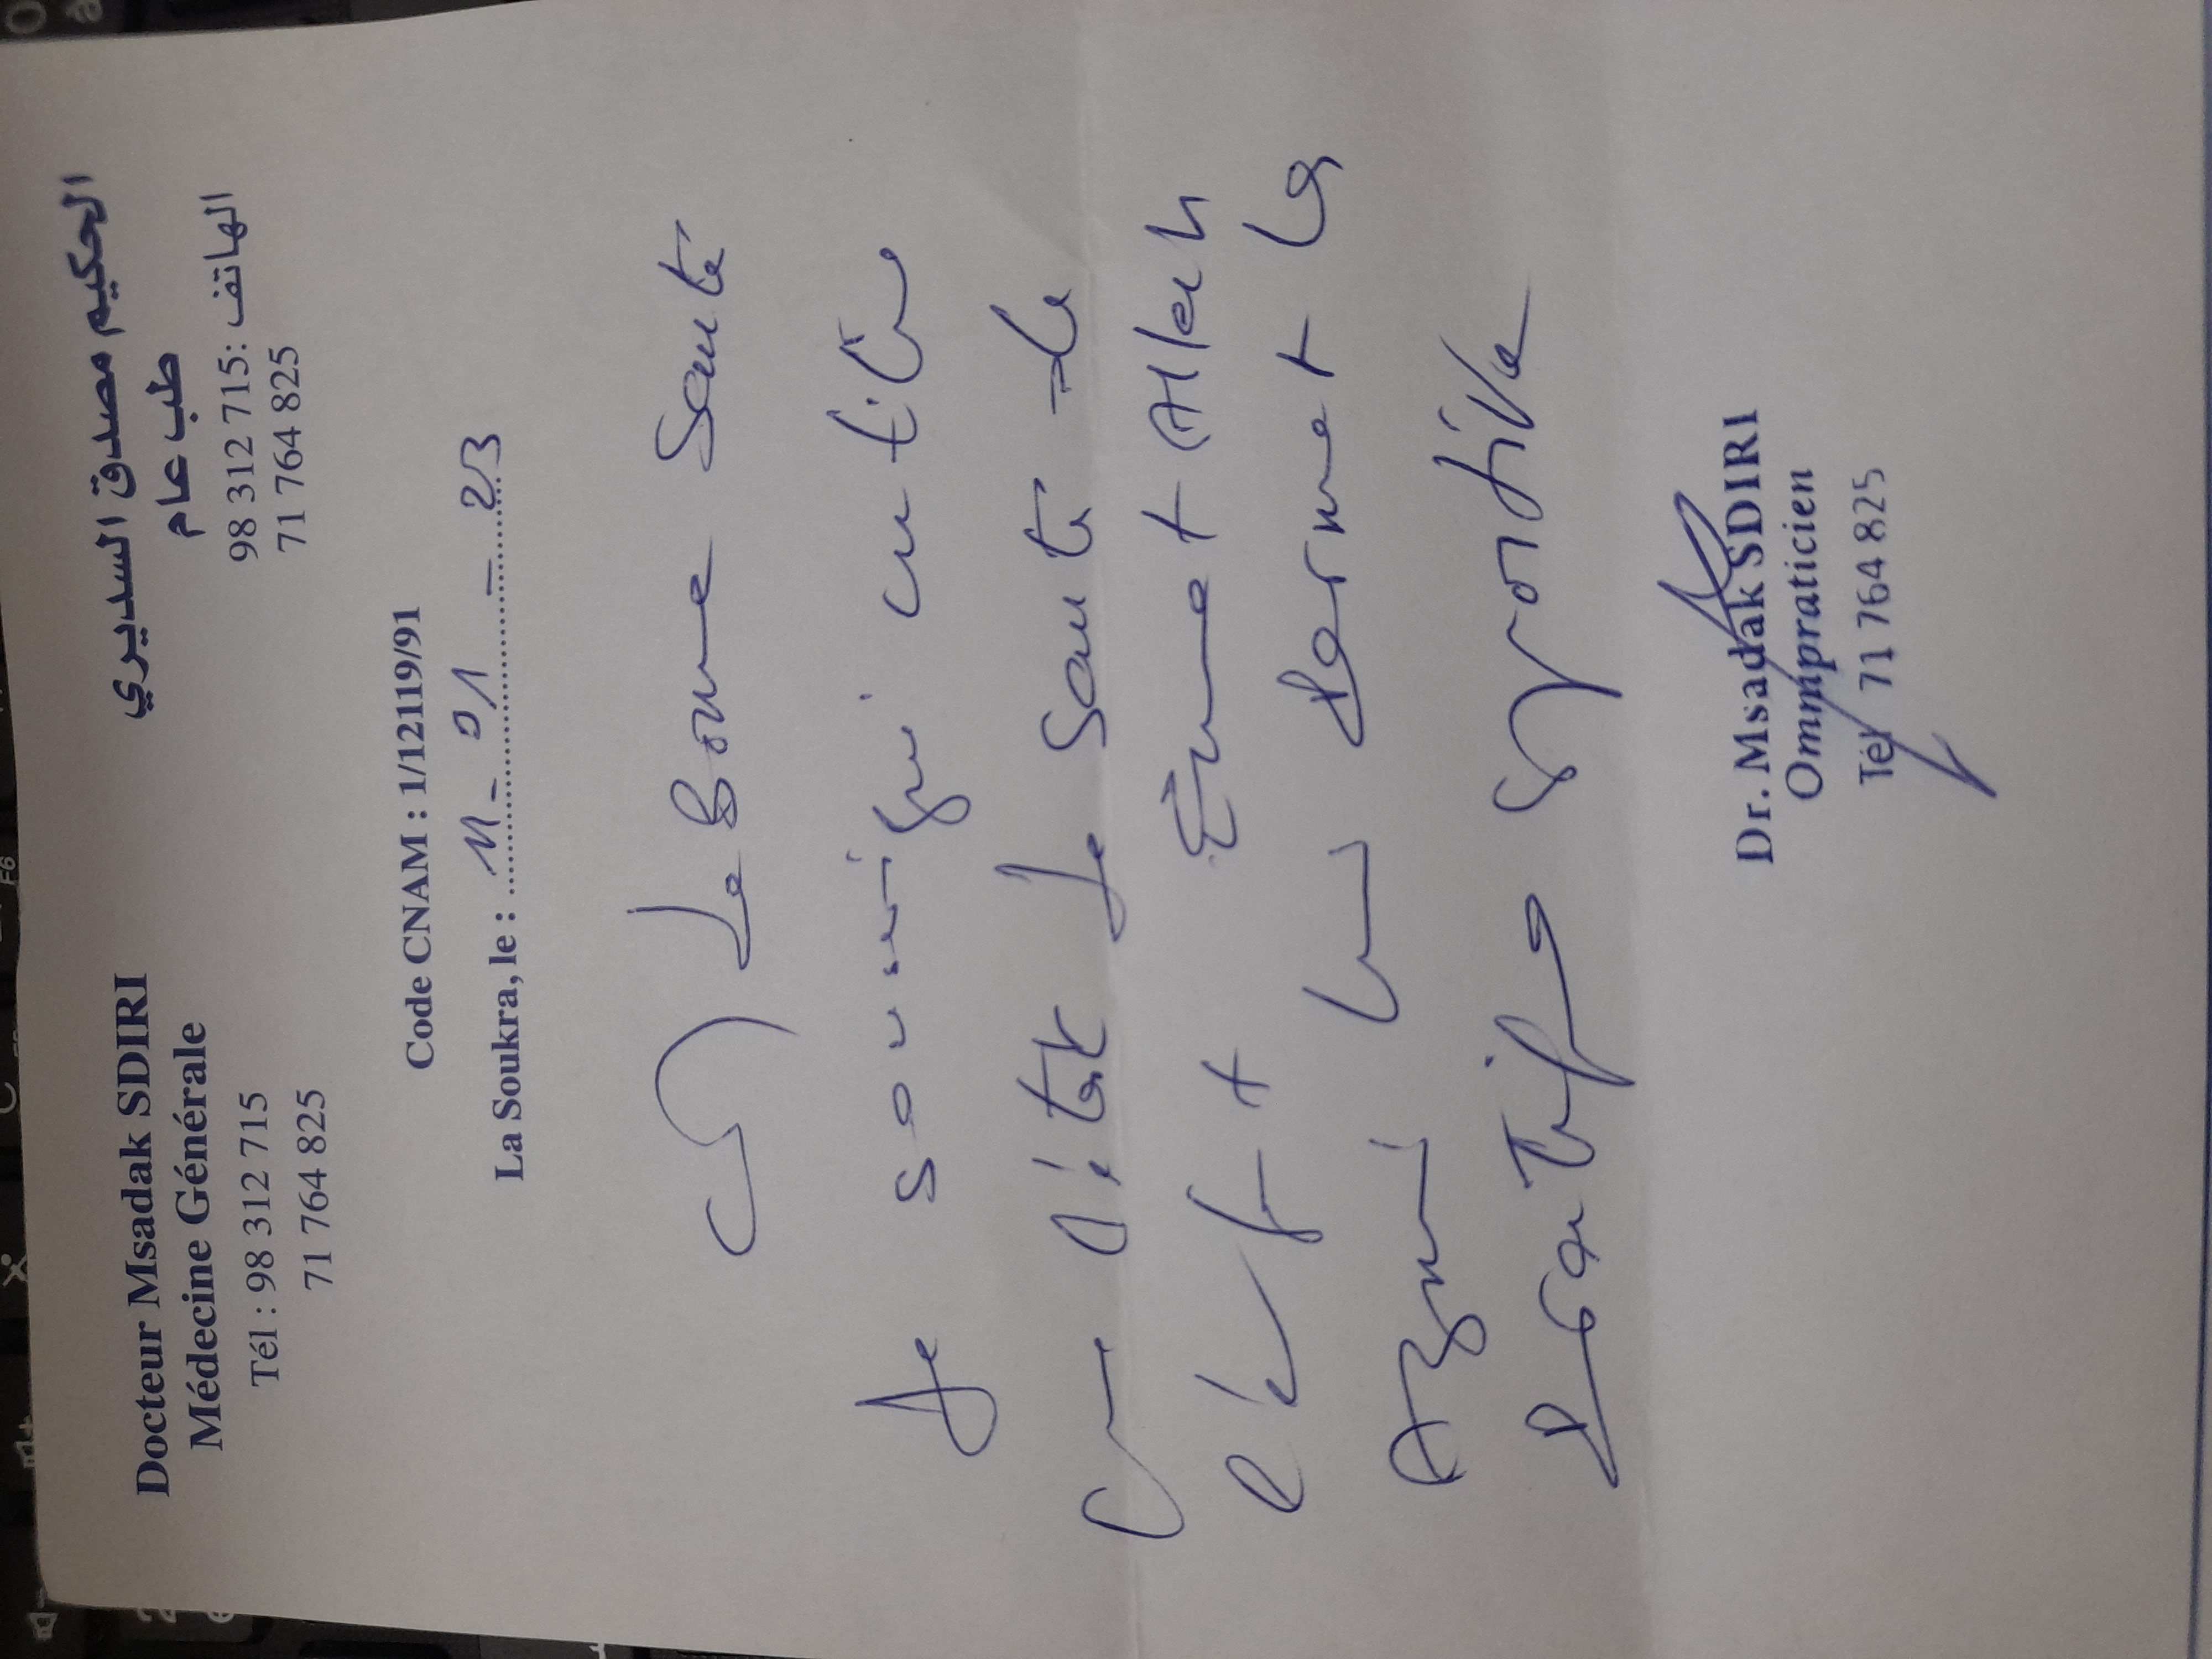 Docteur Msadak SDIRI
Médecine Générale
Tél : 98 312 715
71 764 825
الحكيم مصدق السديري
طب عام
الهاتف: 98 312 715
71 764 825
Code CNAM : 1/12119/91
La Soukra, le : 11 - 01 - 23
de Bonne Santé
Je soussigné certifie
que l'état de santé de
l'enfant Ahmed Allah
Azmi lui permet la
pratique sportive
Dr. Msadak SDIRI
Omnipraticien
Tél 71 764 825